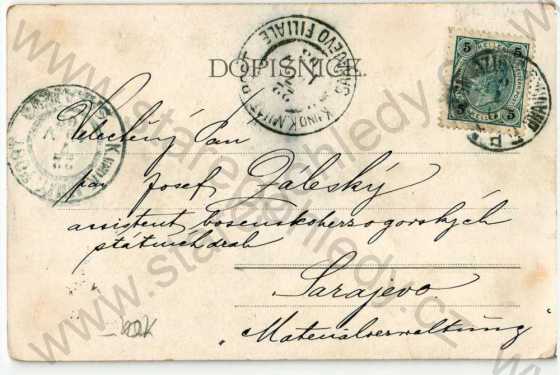 DOPISNICE.
Velectěný Pan
pan Josef Záleský
assistent bosenskoherzogovských
státních drah
Sarajevo.
"Materialverwaltung"
60K
5 5
www.starepohledy.cz